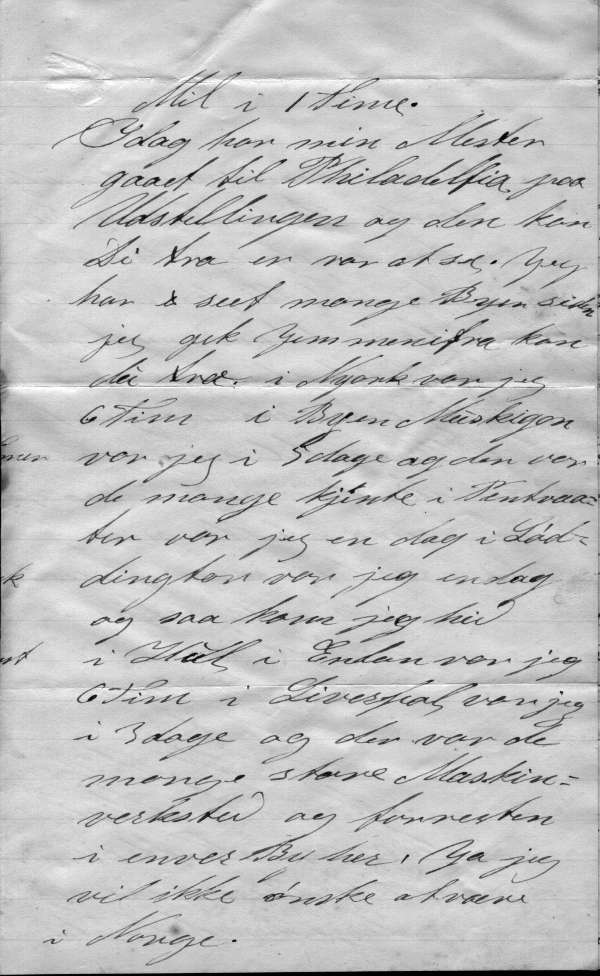 Mil i 1 Time.
Idag har min Mester
gaaet til Philadelfia paa
Udstillingen og den kan
Di tro er rar at se. Jeg
har seet mange Byer siden
jeg gik Jemmenifra kan
di tro. i Nyork var jeg
6 Tim i Byen Muskigon
var jeg i 5 dage og der var
de mange kjente i Pentvaa=
ter var jeg en dag i Lód=
dington var jeg endag
og saa kom jeg hid
i Hul i Enlan var jeg
6 Tim i Liverpal var jeg
i 3 dage og der var de
mange store Maskin=
verksted og forresten
i enver By her, Ja jeg
vil ikke ønske at være
i Norge.